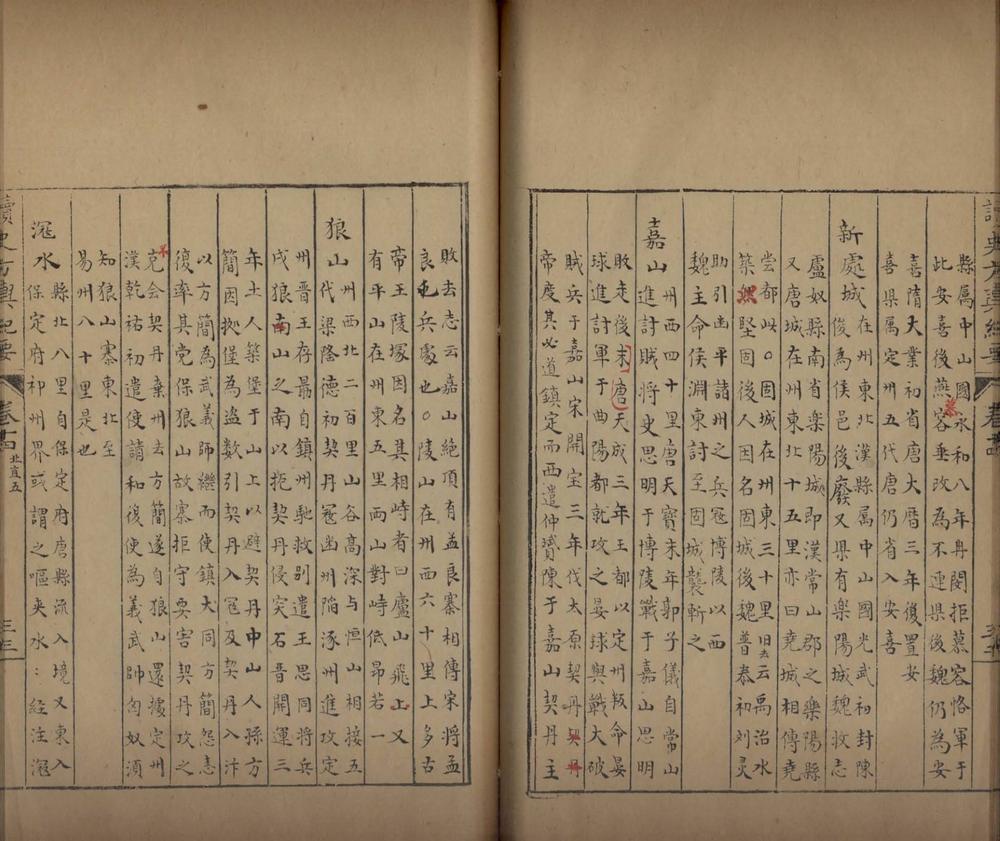 讀史方輿紀要 卷
縣属中山國永和八年冉閔拒慕容恪軍于
此安喜後燕慕容垂改為不連県後魏仍為安
喜隋大業初省唐大暦三年復置安
喜県属定州五代唐仍省入安喜
新處城在州東北漢縣属中山國光武初封陳
俊為侯邑後廢又県有楽陽城魏收志
盧奴縣南省楽陽城即漢常山郡之樂陽縣
又唐城在州東北十五里亦曰堯城相傳堯
尝都此○固城在州東三十里旧志云禹治水
築堅固後人因名固城後魏普泰初刘灵
助引凼平諸州之兵冦博陵以西
魏主命侯淵東討至固城襲斬之
嘉山州西四十里唐天寶末年郭子儀自常山
進討賊將史思明于博陵戰于嘉山思明
敗走後末唐天成三年王都以定州叛命晏
球進討軍于曲陽都就攻之晏球與戰大破
賊兵于嘉山宋開宝三年伐太原契丹契丹
帝度其必道鎮定而西遣仲贇陳于嘉山契丹主
敗去志云嘉山絶頂有孟良寨相傳宋將孟
良屯兵處也○陵山在州西六十里上多古
帝王陵塚因名其相峙者曰盧山飛上又
有平山在州東五里两山對峙低昂若一
狼山州西北二百里山谷髙深与恒山相接五
代梁隆德初契丹冦凼州陥涿州進攻定
州晋王存朂自鎮州馳救别遣王思同將兵
戍狼南山之南以拒契丹侵突石晋開運三
年土人築堡于山上以避契丹中山人孫方
簡因拠堡為盗数引契丹入冦及契丹入汴
以方簡為武義師繼而使鎮大同方簡怨恚
復率其党保狼山故寨拒守要害契丹攻之
不克会契丹棄州去方簡遂自狼山還據定州
漢乾祐初遣使請和後使為義武帥匈奴湏
知狼山寨東北至
易州八十里是也
滱水縣北八里自保定府唐縣流入境又東入
保定府祁州界或謂之嘔夷水：經注滱
讀史方輿紀要 卷十四 北直五 三三